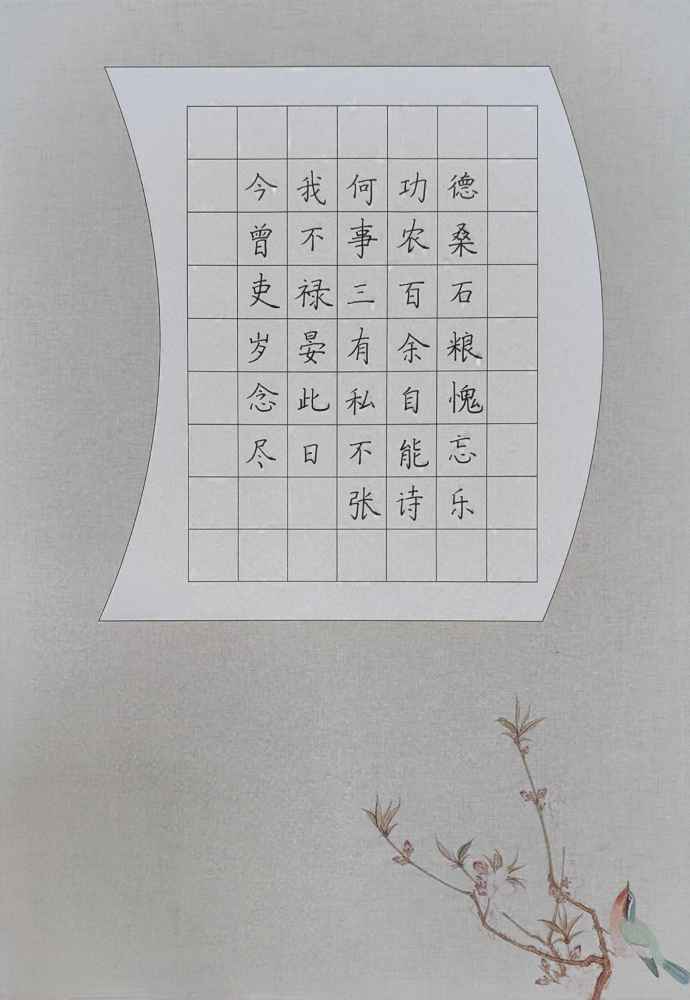 今我何功德
曾不事农桑
吏禄三百石
岁晏有余粮
念此私自愧
尽日不能忘
张诗乐